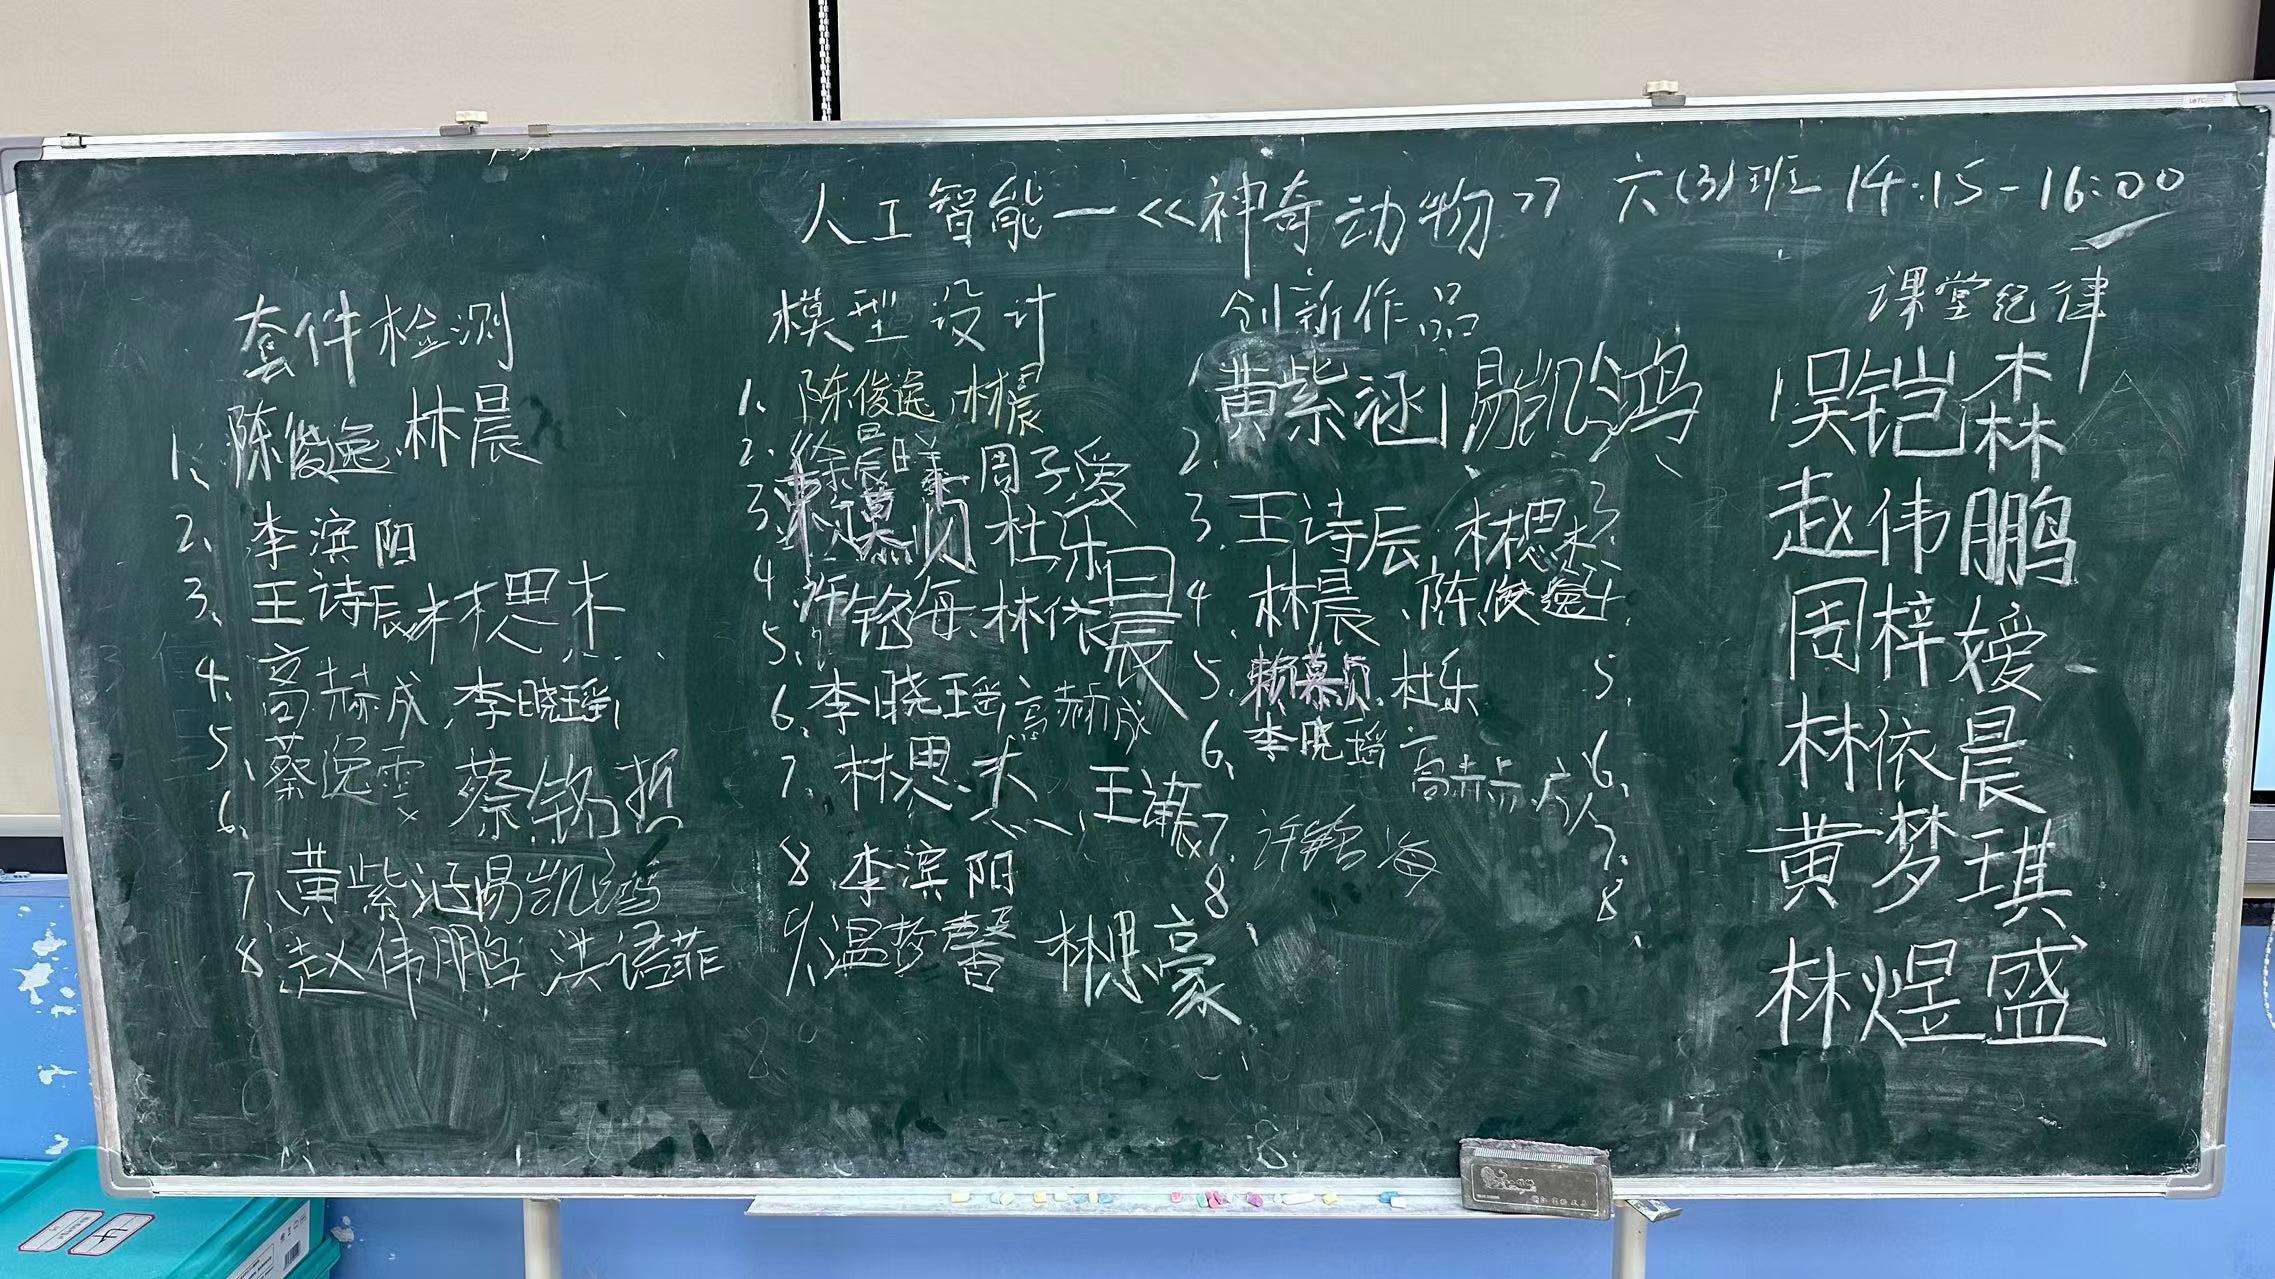 人工智能—<<神奇动物>> 六(3)班 14:15-16:00
套件检测
1、陈俊逸、林晨
2、李滨阳
3、王诗辰、林思木
4、高赫成、李晓瑶
5、蔡逸雲 蔡铭哲
6、
7、黄紫涵 易凯鸿
8 赵伟鹏 洪诺菲
模型设计
1、陈俊逸、林晨
2、徐晨曦 周子爱
3、杜乐
4、许铭海、林依晨
5、
6、李晓瑶、高赫成
7、林思木、王诗辰
8、李滨阳
9、温梦馨 林思豪
创新作品
黄紫涵 易凯鸿
2、
3、王诗辰、林思木 3
4、林晨、陈俊逸 4
5、赖慕贞、杜乐 5、
6、李晓瑶、高赫成 6、
7、许铭海 7、
8 8
课堂纪律
吴铠森
赵伟鹏
周梓嫒
林依晨
黄梦琪
林煜盛
8
4